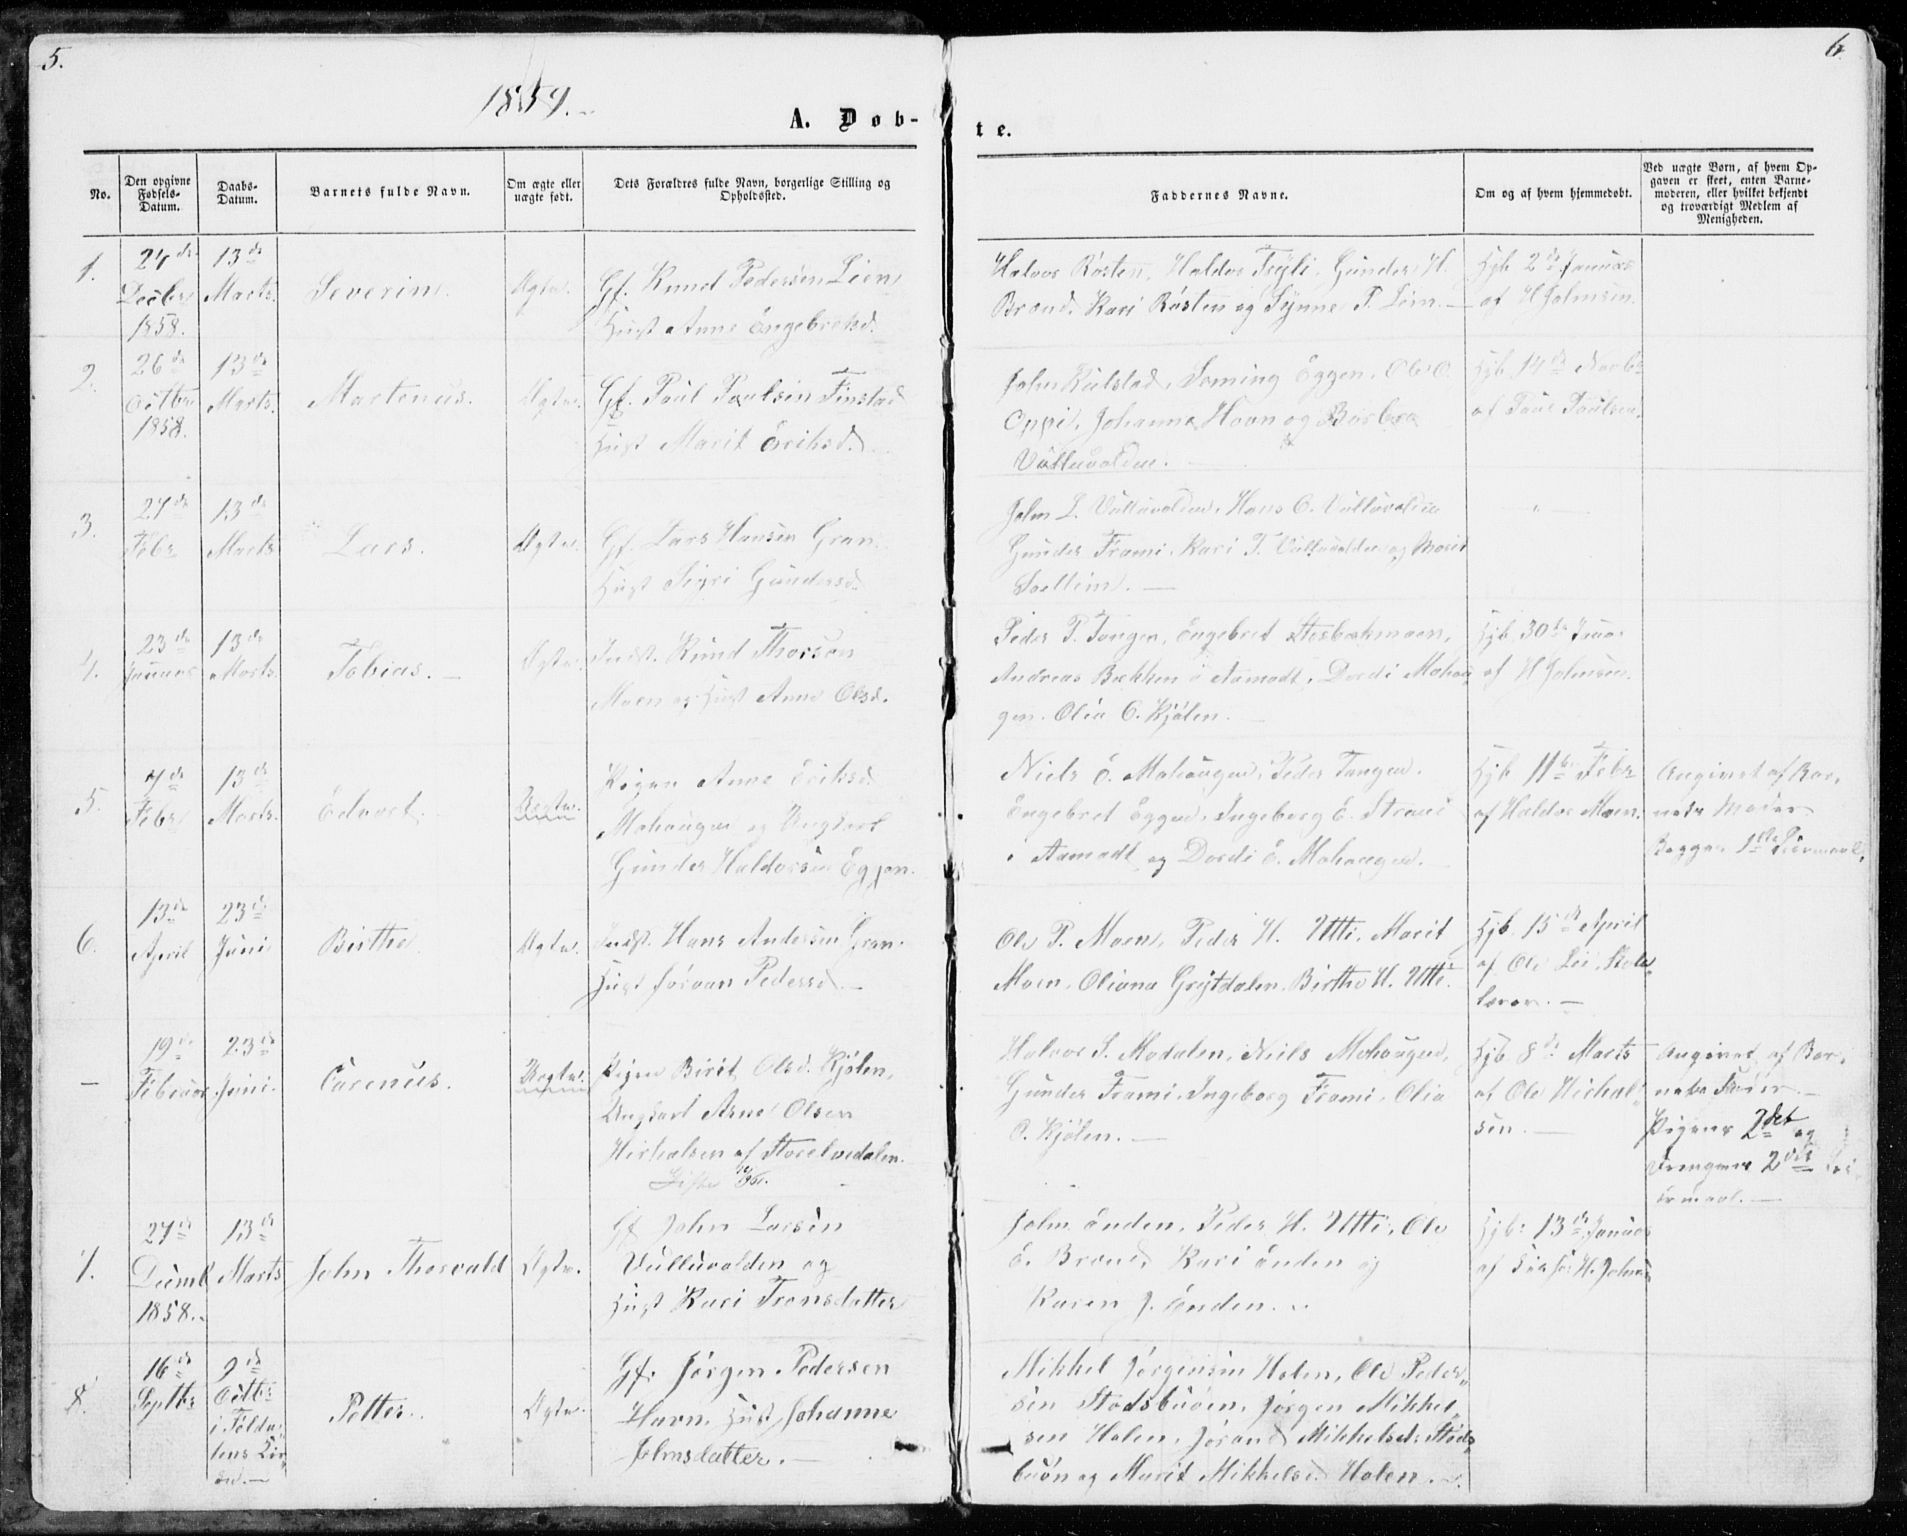 5.
6.
1859.
A. Døb-
te.
No.
Den opgivne Fødsels-Datum.
Daabs-Datum.
Barnets fulde Navn.
Om ægte eller uægte født.
Dets Forældres fulde Navn, borgerlige Stilling og Opholdssted.
Faddernes Navne.
Om og af hvem hjemmedøbt.
Ved uægte Børn, af hvem Opgaven er skeet, enten Barnemoderen, eller hvilket bekjendt og troværdigt Medlem af Menigheden.
1.
24de
Decbr
1858.
13de
Marts.
Severin.
Ægte.
Gf. Knud Pedersen Lien
Hust Anne Engebretsd.
Halvor Røsten, Haldor Frøli, Gunder H.
Brænd, Kari Røsten og Synne P. Lien.
Hjb 2de Januar
af H Johnsen.
2.
26de
Octbr
1858.
13de
Marts.
Martenus.
Ægte.
Gf. Paul Paulsen Finstad
Hust Marit Eriksd.
John Kulstad, Eggen, Ole O.
Oppi, Johanne Hovn og Barbra
Vulluvolden.
Hjb. 14de Novbr
af Paul Paulsen.
3.
27de
Febr
13de
Marts
Lars.
Ægte.
Gf. Lars Hansen Gran.
Hust Sigri Gundersd.
John L. Vulluvolden, Hans O. Vulluvolden
Gunder Frami, Kari T. Vulluvolden og Marit
4.
23de
Januar
13de
Marts.
Tobias.
Ægte.
Indst. Knud Thorsen
Moen og Hust Anne Olsd.
Peder P. Tangen, Engebret
Andreas Bækken i Aamodt, Dordi Mohau
gen. Olia O. Kjølen.
Hjb. 30te Januar
af H Johnsen.
5.
7de
Febr
13de
Marts.
Edvart.
Uægte.
Pigen Anne Eriksd.
Mohaugen og Ungkarl
Gunder Haldorsen Eggen.
Niels E. Mohaugen, Peder Tangen.
Engebret Eggen, Ingeborg E.
i Aamodt og Dordi E. Mohaugen.
Hjb 11te Febr
af Haldor Moen.
Angivet af Bar,
nets Moder
Begges 1ste Leiermaal.
6.
13de
April
23de
Juni
Birthe.
Ægte.
Indst. Hans Andersen Gran.
Hust Joraan Pedersd.
Ole P. Moen, Peder H. Utti, Marit
Moen, Oliana Grøtdalen, Birthe H. Utti.
Hjb. 15de April
af Ole Lie, Skole,
lærer.
-
19de
Februar
23de
Juni.
Carenus.
Uægte.
Pigen Birit Olsd. Kjølen,
Ungkarl Arne Olsen
af Storelvedalen.
Halvor S. Modalen, Niels Mohaugen,
Gunder Frami, Ingeborg Frami, Olia
O. Kjølen.
Hjb 8de Marts
af Ole
sen.
Angivet af Bar,
nets Fader.
Pigens 2det og
Drengens 2det Lei
ermaal.
7.
27de
Decmb
1858.
13de
Marts
John Thorvald
Ægte.
Gf John Larsen
Vulluvolden og
Hust Kari Tronsdatter
John Enden, Peder H. Utti, Ole
E. Brænd, Kari Enden og
Karen J. Enden.
Hjb: 13de Januar
af H. Johnsen
8.
16de
Septbr
9de
Octbr
i Folda,
lens Kir
ke.
Petter.
Ægte.
Gf. Jørgen Pedersen
Havn, Hust Johanne
Johnsdatter.
Mikkel Jørgensen Holen, Ole Peder,
sen Stadsbuøen, Jørgen Mikkel,
sen Holen, Jørand Mikkelsdr Stads,
buøn og Marit Mikkelsd Holen.